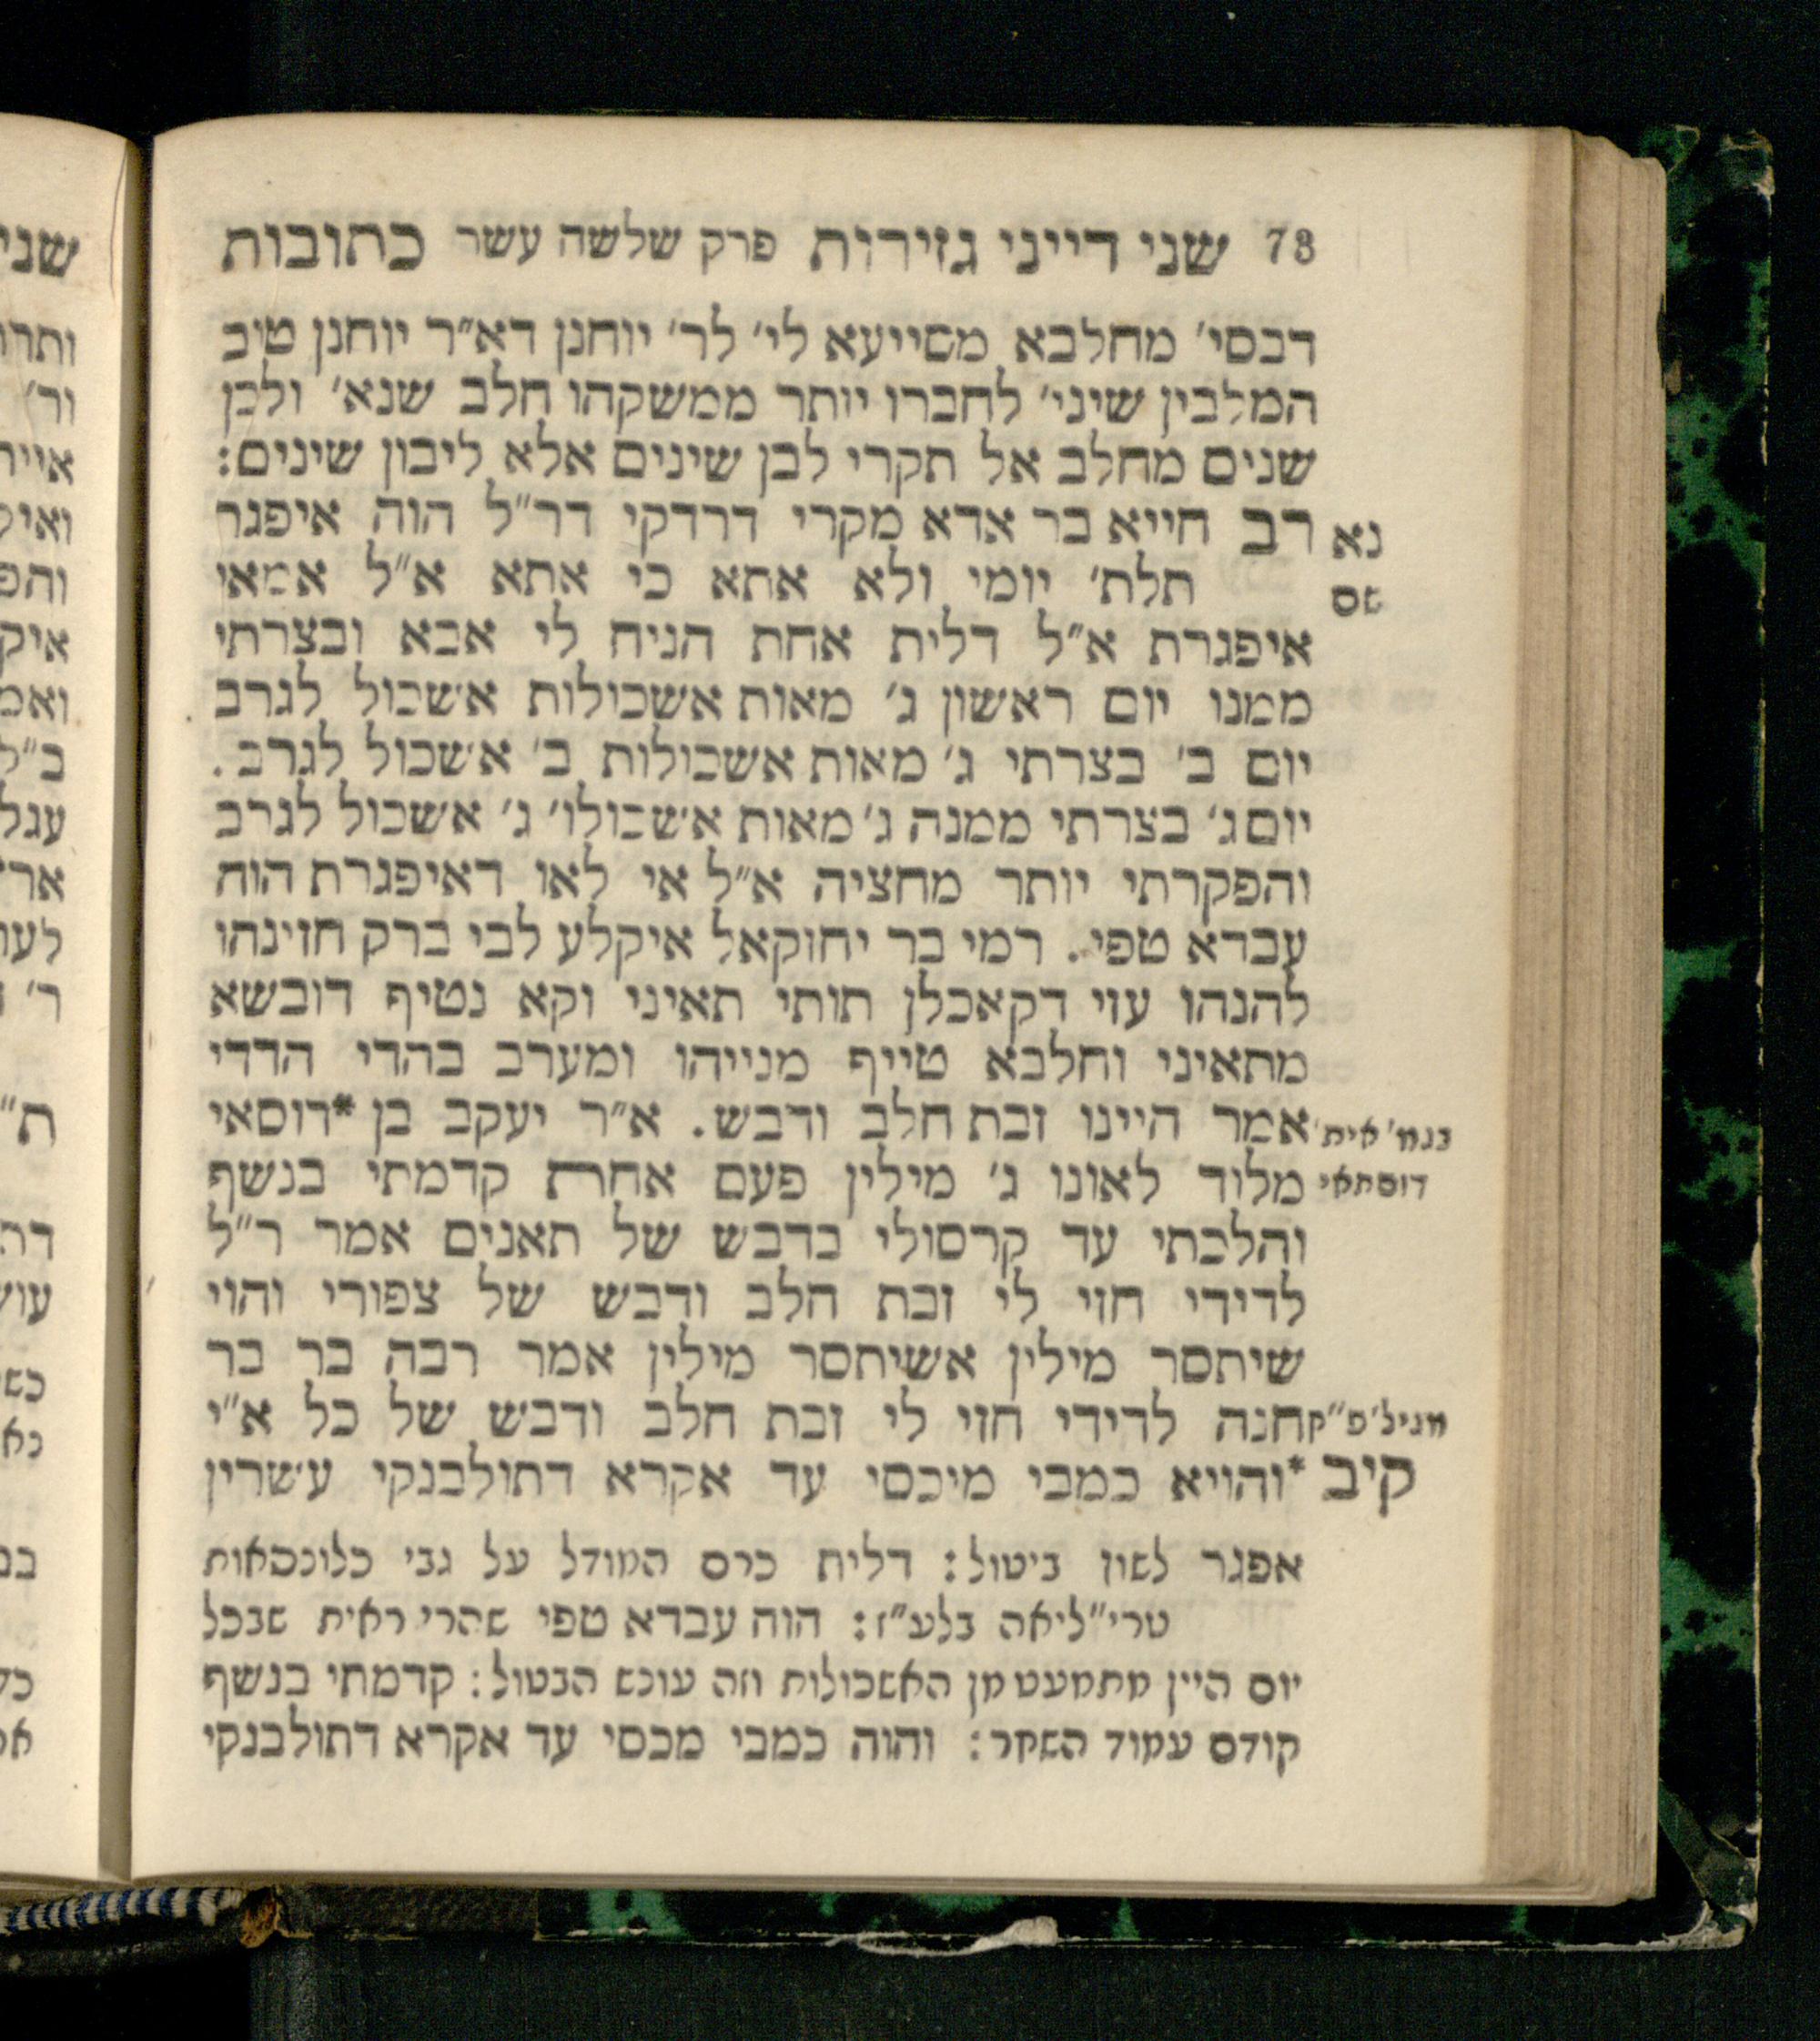 78 שני דייני גזירות פרק שלשה עשר כתובות
דבסי' מחלבא מסייעא לי' לר' יוחנן דא"ר יוחנן טוב
המלבין שיני' לחברו יותר ממשקהו חלב שנא' ולבן
שנים מחלב אל תקרי לבן שינים אלא ליבון שינים:
נא רב חייא בר אדא מקרי דרדקי דר"ל הוה איפגר
שם תלת' יומי ולא אתא כי אתא א"ל אמאי
איפגרת א"ל דלית אחת הניח לי אבא ובצרתי
ממנו יום ראשון ג' מאות אשכולות אשכול לגרב
יום ב' בצרתי ג' מאות אשכולות ב' אשכול לגרב.
יום ג' בצרתי ממנה ג' מאות אשכולו' ג' אשכול לגרב
והפקרתי יותר מחציה א"ל אי לאו דאיפגרת הוה
עברא טפי. רמי בר יחזקאל איקלע לבי ברק חזינהו
להנהו עזי דקאכלן תותי תאיני וקא נטיף דובשא
מתאיני וחלבא טייף מנייהו ומערב בהדי הדדי
בגמ' אית' אמר היינו זבת חלב ודבש. א"ר יעקב בן *דוסאי
דוסתאי מלוד לאונו ג' מילין פעם אחת קדמתי בנשף
והלכתי עד קרסולי בדבש של תאנים אמר ר"ל
לדידי חזי לי זבת חלב ודבש של צפורי והוי
שיתסר מילין אשיתסר מילין אמר רבה בר בר
מגיל' פ"ק חנה לדידי חזי לי זבת חלב ודבש של כל א"י
קיב *והויא כמבי מיכסי עד אקרא דתולבנקי עשרין
אפגר לשון ביטול: דלית כרם המודל על גבי כלונסאות
טרי"ליאה בלע"ז: הוה עבדא טפי שהרי ראית שבכל
יום היין מתמעט מן האשכולות וזה עונש הבטול: קדמתי בנשף
קודם עמוד השחר: והוה כמבי מכסי עד אקרא דתולבנקי